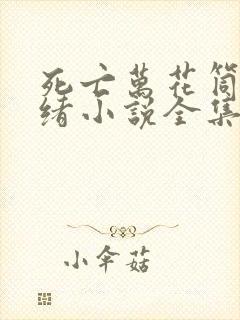 死亡萬花筒
緒小說全集
小傘菇